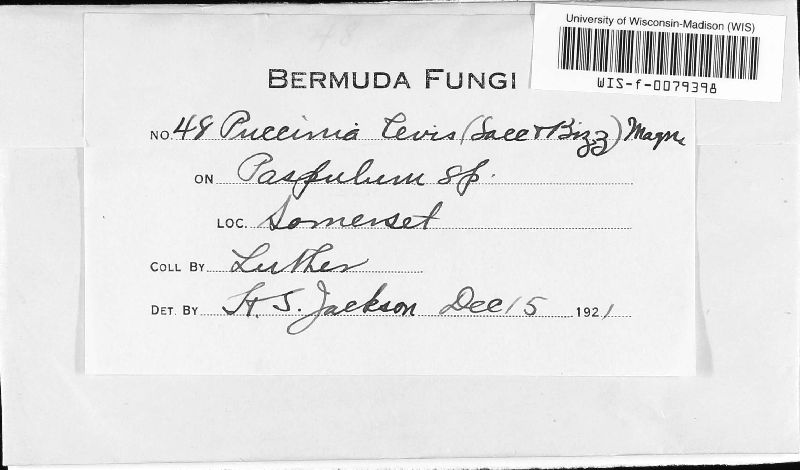 University of Wisconsin-Madison (WIS)
WIS-f-0079398
48
BERMUDA FUNGI
NO. 48 Puccinia levis (Sacc & Bizz) Magn.
ON Paspulum sp.
LOC. Somerset
COLL BY Luther
DET. BY H. S. Jackson Dec 15 1921